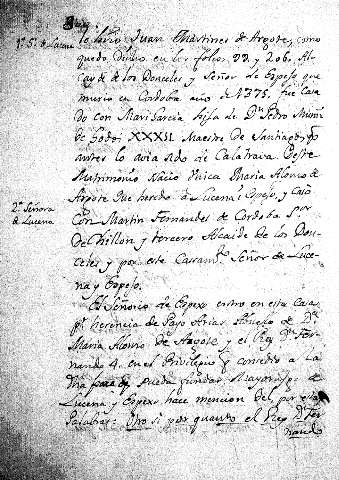 1º Sr. de Lucena
lo Juan Martines de Argote, como
queda dicho en los folios 22 y 206. Al-
cayde de los Donceles y Señor de Espejo, que
murio en Cordoba año de 1375. fue Casa
do con Mari Garcia hija de Dn. Pedro Muñiz
de Godoi XXXII Maestre de Santiago, qe
antes lo avia sido de Calatrava. Deste
Matrimonio Nacio Unica Maria Alonso de
Argote que heredo a Lucena i Espejo, y casó
2ª Señora
de Lucena
Con Martin Fernandes de Cordoba Sor
De Chillon y tercero Alcaide de los Don-
celes y por este Casamto. Señor de Luce-
na y Espejo.
El Señorio de Espexo entro en esta Casa
pr. herencia de Payo Arias Abuelo de Da.
Maria Alonso de Argote y el Rey Dn. Fer-
nando 4. en el Privilegio q concedio a
pueda fundar Mayorasgo de
Lucena y Espexo, hace mencion del por estas
Palabras: Otro si por quanto el Rey Dn. Fer-
nando